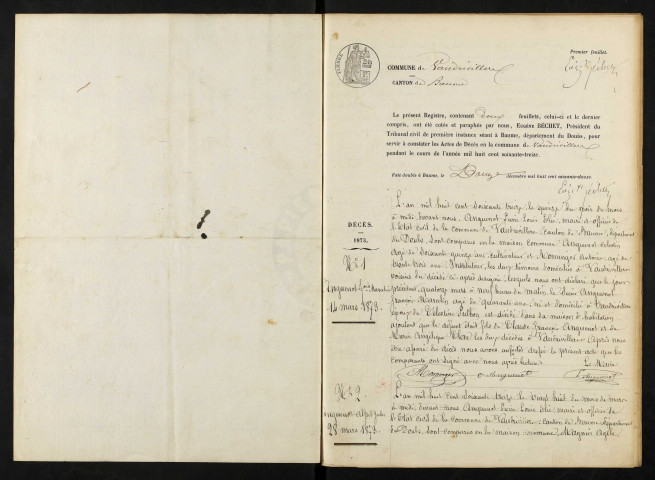 Premier feuillet.
COMMUNE de Vaudrivillers
CANTON de Baume
Le présent Registre, contenant deux feuillets, celui-ci et le dernier
compris, ont été cotés et paraphés par nous, Eusèbe BÉCHET, Président du
Tribunal civil de première instance séant à Baume, département du Doubs, pour
servir à constater les Actes de Décès en la commune de Vaudrivillers
pendant le cours de l'année mil huit cent soixante-treize.
Fait double à Baume, le Douze décembre mil huit cent soixante-douze.
DÉCÈS.
1873.
L'an mil huit cent soixante treize le quinze du mois de mars
à midi devant nous Anguenot Pierre Louis Elie, maire et officier de
l'Etat civil de la commune de Vaudrivillers canton de Baume département
du Doubs, sont comparus en la maison commune Anguenot
agé de soixante quinze ans cultivateur et Monnayet Antoine agé de
trente trois ans Instituteur, les deux témoins domiciliés à Vaudrivillers
voisins du décédé ci après désigné, lesquels nous ont déclaré que le jour
précédent, quatorze mars à neuf heures du matin, le sieur Anguenot
François agé de quarante ans, né et domicilié à Vaudrivillers
époux de Célestine est décédé dans sa maison d'habitation
ajoutant que le défunt était fils de Claude François Anguenot et de
Marie Angélique les deux décédés à Vaudrivillers. Après nous
être assuré du décès nous avons aussitôt dressé le présent acte que les
comparants ont signé avec nous après lecture. Le Maire
No. 1
14 mars 1873
Anguenot
No. 2
28 mars 1873
L'an mil huit cent soixante treize le vingt huit du mois de mars
à midi, devant nous Anguenot Pierre Louis Elie maire et officier de
l'Etat civil de la commune de Vaudrivillers canton de Baume département
du Doubs, sont comparus en la maison commune